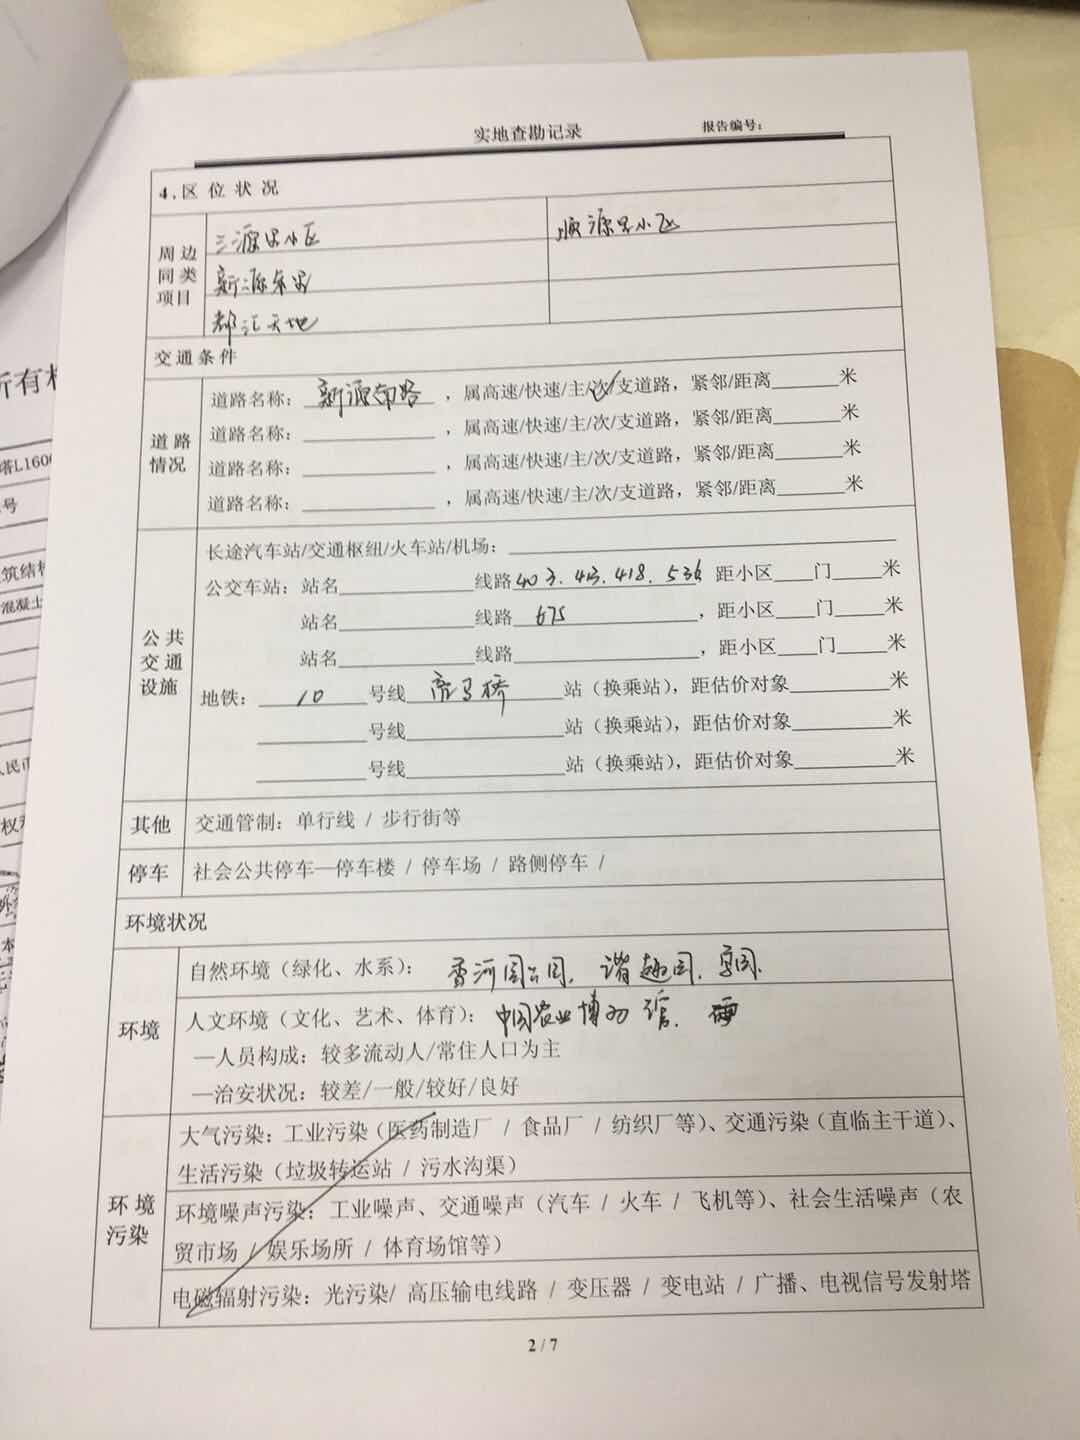 实地查勘记录 报告编号：
4.区位状况
周边同类项目
三源里小区 顺源里小区
新源东里
都汇天地
交通条件
道路情况
道路名称：新源南路，属高速/快速/主/次/支道路，紧邻/距离______米
道路名称：__________，属高速/快速/主/次/支道路，紧邻/距离______米
道路名称：__________，属高速/快速/主/次/支道路，紧邻/距离______米
道路名称：__________，属高速/快速/主/次/支道路，紧邻/距离______米
公共交通设施
长途汽车站/交通枢纽/火车站/机场：__________
公交车站：站名__________线路403.413.418.536 距小区____门____米
站名__________线路 675，距小区____门____米
站名__________线路__________，距小区____门____米
地铁：10号线 亮马桥 站（换乘站），距估价对象________米
________号线__________站（换乘站），距估价对象________米
________号线__________站（换乘站），距估价对象________米
其他 交通管制：单行线 / 步行街等
停车 社会公共停车—停车楼 / 停车场 / 路侧停车 /
环境状况
环境
自然环境（绿化、水系）：香河园公园、谐趣园、
人文环境（文化、艺术、体育）：中国农业博物馆、
—人员构成：较多流动人/常住人口为主
—治安状况：较差/一般/较好/良好
环境污染
大气污染：工业污染（医药制造厂 / 食品厂 / 纺织厂等）、交通污染（直临主干道）、
生活污染（垃圾转运站 / 污水沟渠）
环境噪声污染：工业噪声、交通噪声（汽车 / 火车 / 飞机等）、社会生活噪声（农
贸市场 / 娱乐场所 / 体育场馆等）
电磁辐射污染：光污染/ 高压输电线路 / 变压器 / 变电站 / 广播、电视信号发射塔
2 / 7
所有权
塔L160
号
筑结构
混凝土